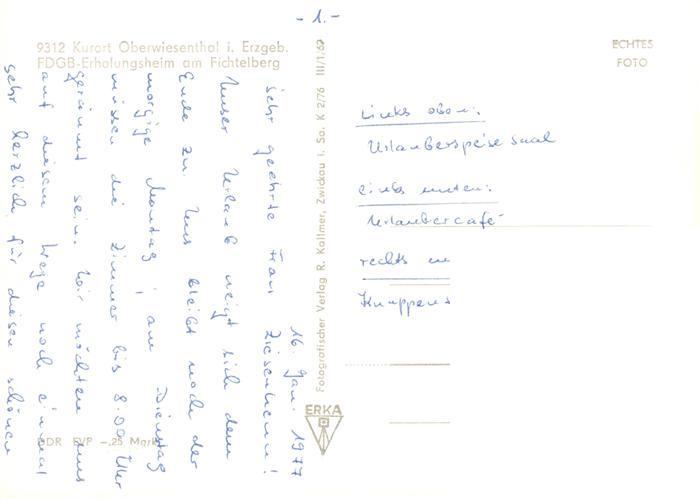 - 1. -
9312 Kurort Oberwiesenthal i. Erzgeb.
FDGB-Erholungsheim am Fichtelberg
ECHTES
FOTO
16. Jan. 1977
Sehr geehrte Frau Ziesenhenn!
Unser Urlaub neigt sich dem
Ende zu. Uns bleibt noch der
morgige Montag; am Dienstag
müssen die Zimmer bis 8.00 Uhr
geräumt sein. Wir möchten uns
auf diesem Wege noch einmal
sehr herzlich für diesen schönen
Fotografischer Verlag R. Kallmer, Zwickau i. Sa. K 2/76 III/1/67
Links oben:
Urlauberspeisesaal
links unten:
Urlaubercafé
rechts un
Knappens
ERKA
DDR EVP -,25 Mark